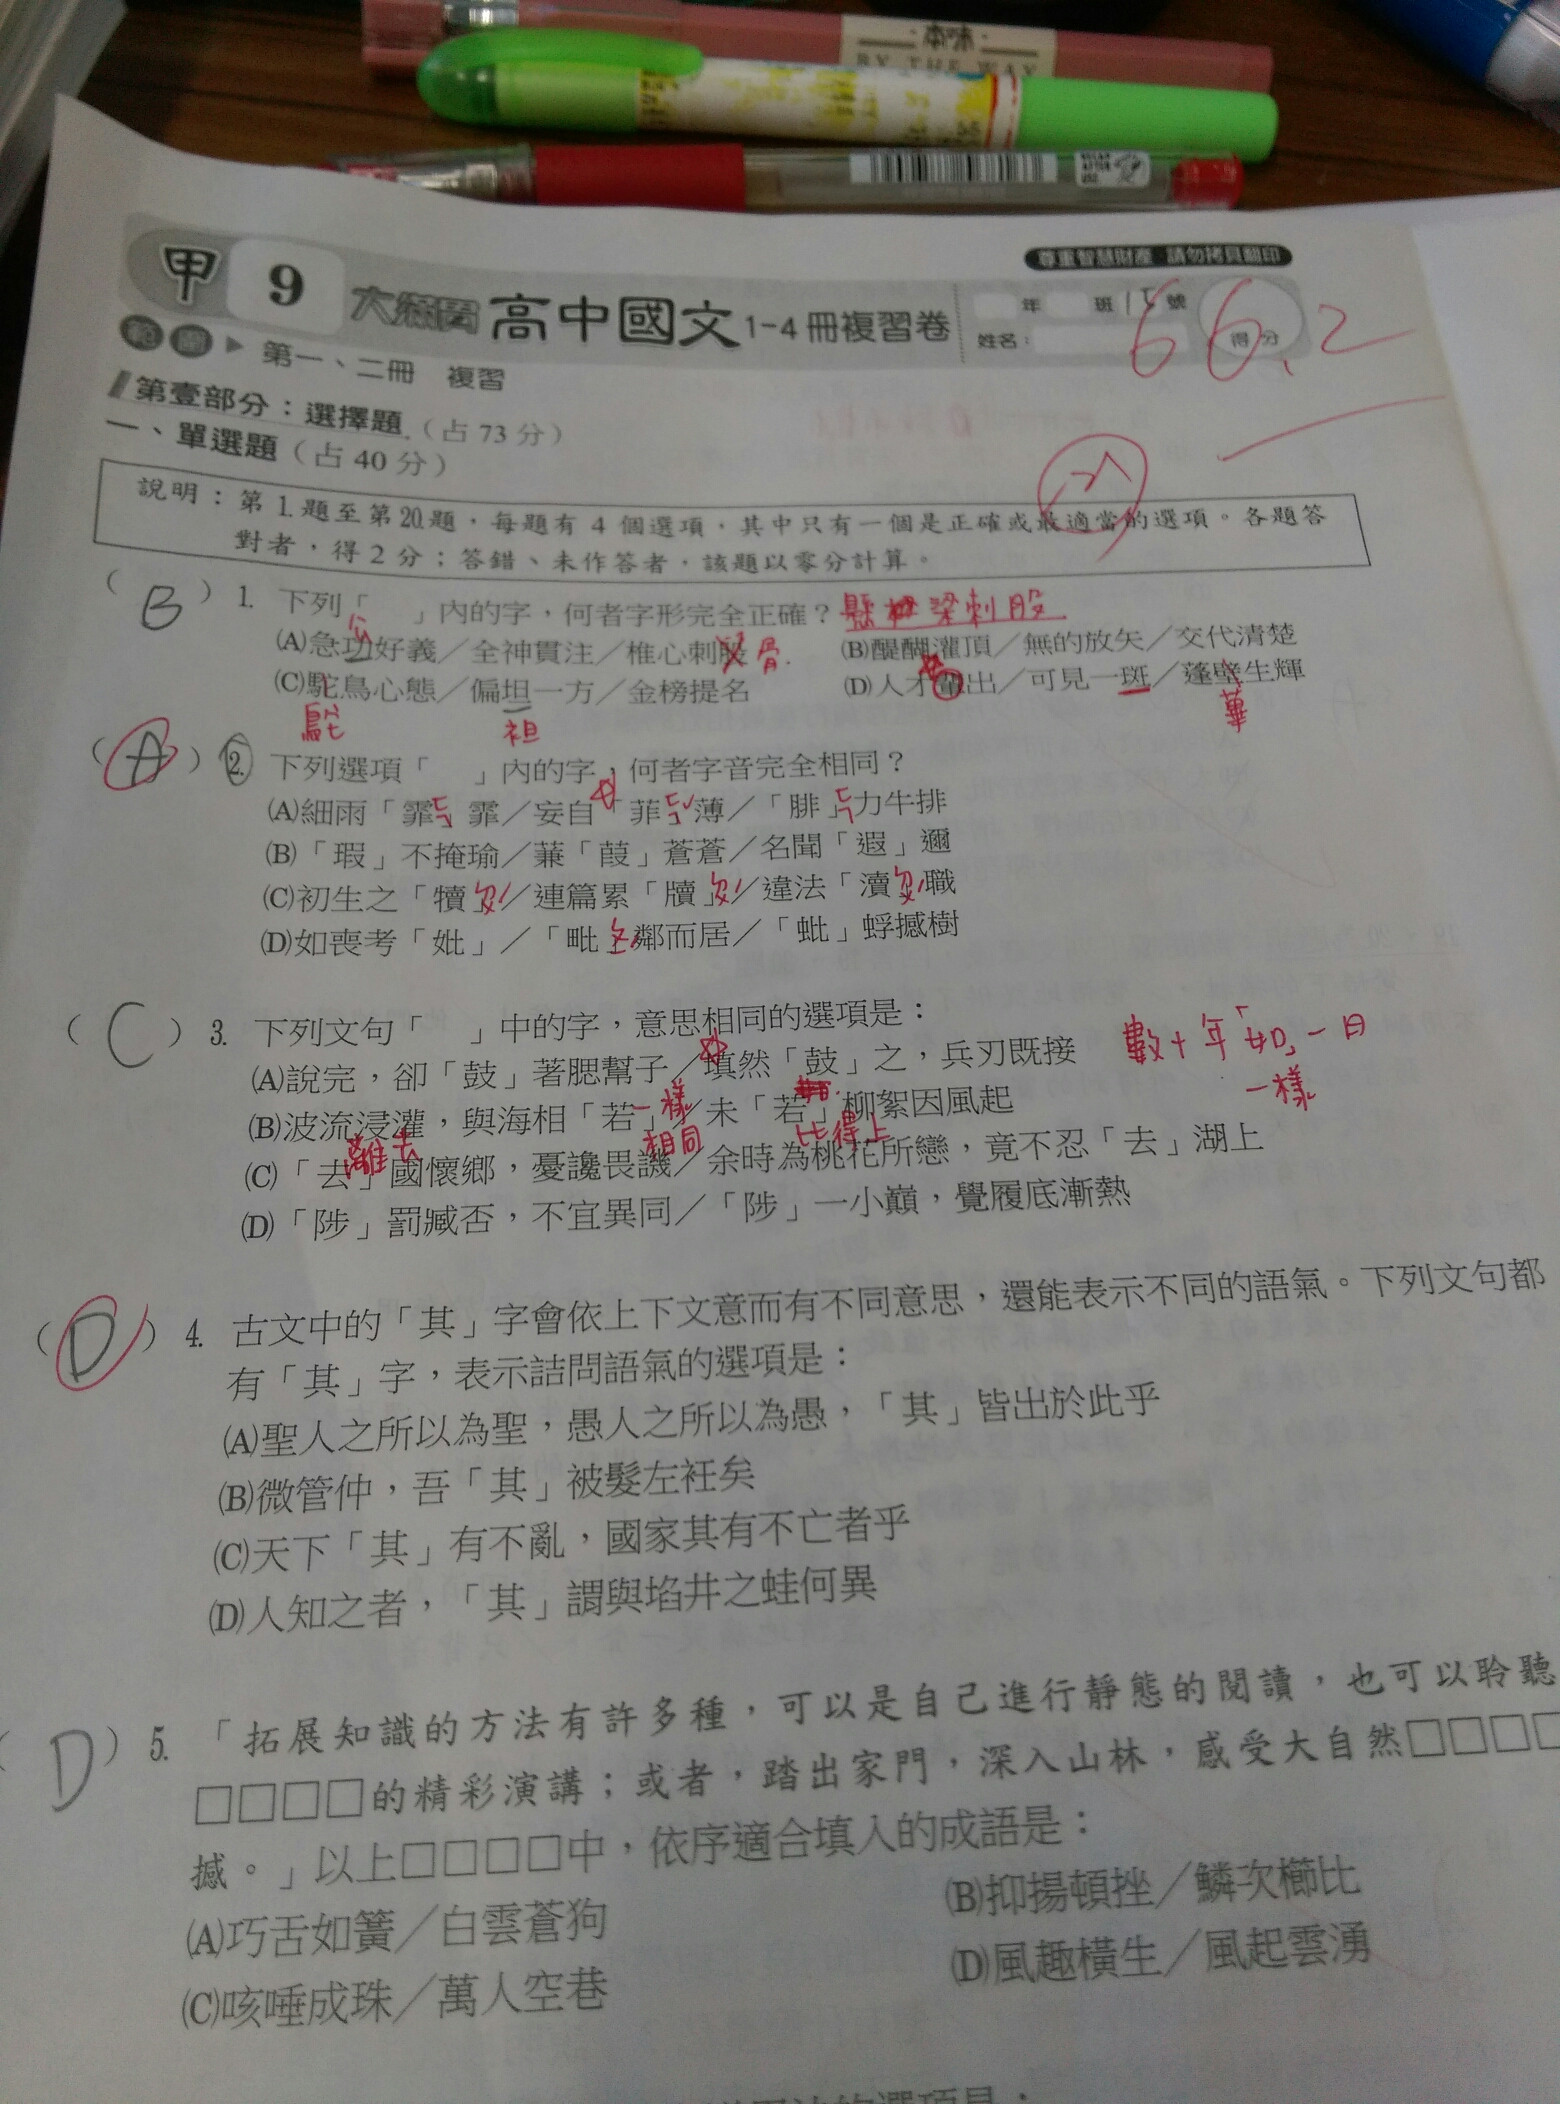 本味
BY THE WAY
尊重智慧財產 請勿拷貝翻印
甲 9 大滿貫 高中國文 1-4 冊複習卷
年 班 號
姓名： 得分
66.2
範圍▶第一、二冊 複習
第壹部分：選擇題（占 73 分）
一、單選題（占 40 分）
說明：第 1.題至第 20.題，每題有 4 個選項，其中只有一個是正確或最適當的選項。各題答
對者，得 2 分；答錯、未作答者，該題以零分計算。
（B）1. 下列「 」內的字，何者字形完全正確？ 懸梁刺股
(A)急功好義／全神貫注／椎心刺股 骨 (B)醍醐灌頂／無的放矢／交代清楚
公
(C)駝鳥心態／偏坦一方／金榜提名 (D)人才輩出／可見一斑／蓬壁生輝
鴕 袒 蓽
（A）2. 下列選項「 」內的字，何者字音完全相同？
(A)細雨「霏」霏／妄自「菲」薄／「腓」力牛排
(B)「瑕」不掩瑜／蒹「葭」蒼蒼／名聞「遐」邇
(C)初生之「犢」／連篇累「牘」／違法「瀆」職
(D)如喪考「妣」／「毗」鄰而居／「蚍」蜉撼樹
（C）3. 下列文句「 」中的字，意思相同的選項是：
(A)說完，卻「鼓」著腮幫子／填然「鼓」之，兵刃既接 數十年「如」一日
一樣
(B)波流浸灌，與海相「若」／未「若」柳絮因風起
一樣 相同 比得上
(C)「去」國懷鄉，憂讒畏譏／余時為桃花所戀，竟不忍「去」湖上
離去
(D)「陟」罰臧否，不宜異同／「陟」一小巔，覺履底漸熱
（D）4. 古文中的「其」字會依上下文意而有不同意思，還能表示不同的語氣。下列文句都
有「其」字，表示詰問語氣的選項是：
(A)聖人之所以為聖，愚人之所以為愚，「其」皆出於此乎
(B)微管仲，吾「其」被髮左衽矣
(C)天下「其」有不亂，國家其有不亡者乎
(D)人知之者，「其」謂與埳井之蛙何異
（D）5. 「拓展知識的方法有許多種，可以是自己進行靜態的閱讀，也可以聆聽
□□□□的精彩演講；或者，踏出家門，深入山林，感受大自然□□□□
撼。」以上□□□□中，依序適合填入的成語是：
(A)巧舌如簧／白雲蒼狗 (B)抑揚頓挫／鱗次櫛比
(C)咳唾成珠／萬人空巷 (D)風趣橫生／風起雲湧
的選項是：